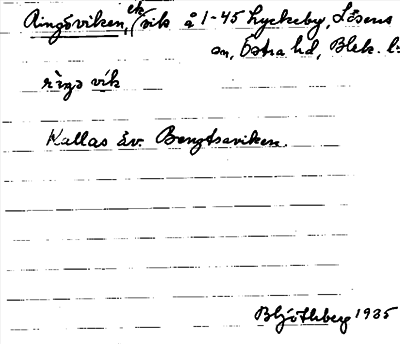 Ringöviken, ek. (vik å 1-45 Lyckeby, Lösens
sn, Östra hd, Blek. l:
riŋə vik
Kallas äv. Bengtsaviken.
B Hjöthberg 1935